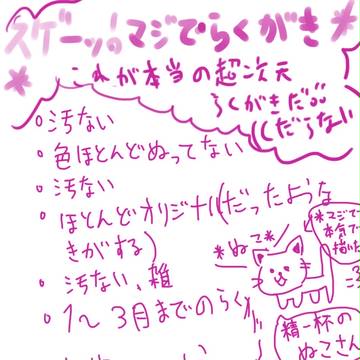 スゲーッ!! マジでらくがき
これが本当の超次元
らくがきだ!!
((くだらない
○汚ない
・色ほとんどぬってない
・汚ない
・ほとんどオリジナル(だったような
きがする)
・汚ない、雑
・1〜3月までのらく
*ぬこ*
*マジで
本気で
描いた
精一杯の
ぬこさん